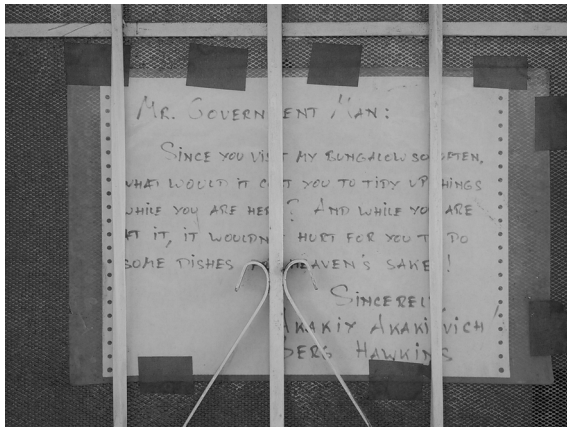 MR. GOVERNMENT MAN:
SINCE YOU VISIT MY BUNGALOW SO OFTEN,
WHAT WOULD IT COST YOU TO TIDY UP THINGS
WHILE YOU ARE HERE? AND WHILE YOU ARE
AT IT, IT WOULDN'T HURT FOR YOU TO DO
SOME DISHES FOR HEAVEN'S SAKE!
SINCERELY
AKAKIY AKAKIEVICH
HAWKINS